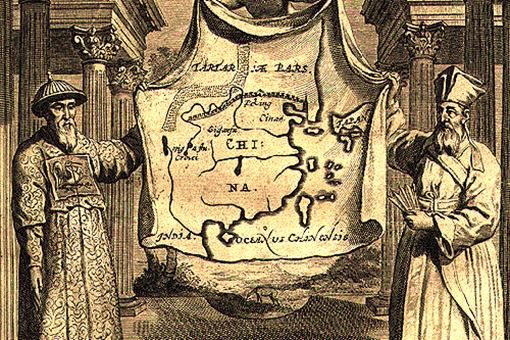 TARTARIÆ PARS.
Peking
Cinae
Siganfu
IAPAN
CHI:
NA.
INDIA.
OCEANUS CHINENSIS